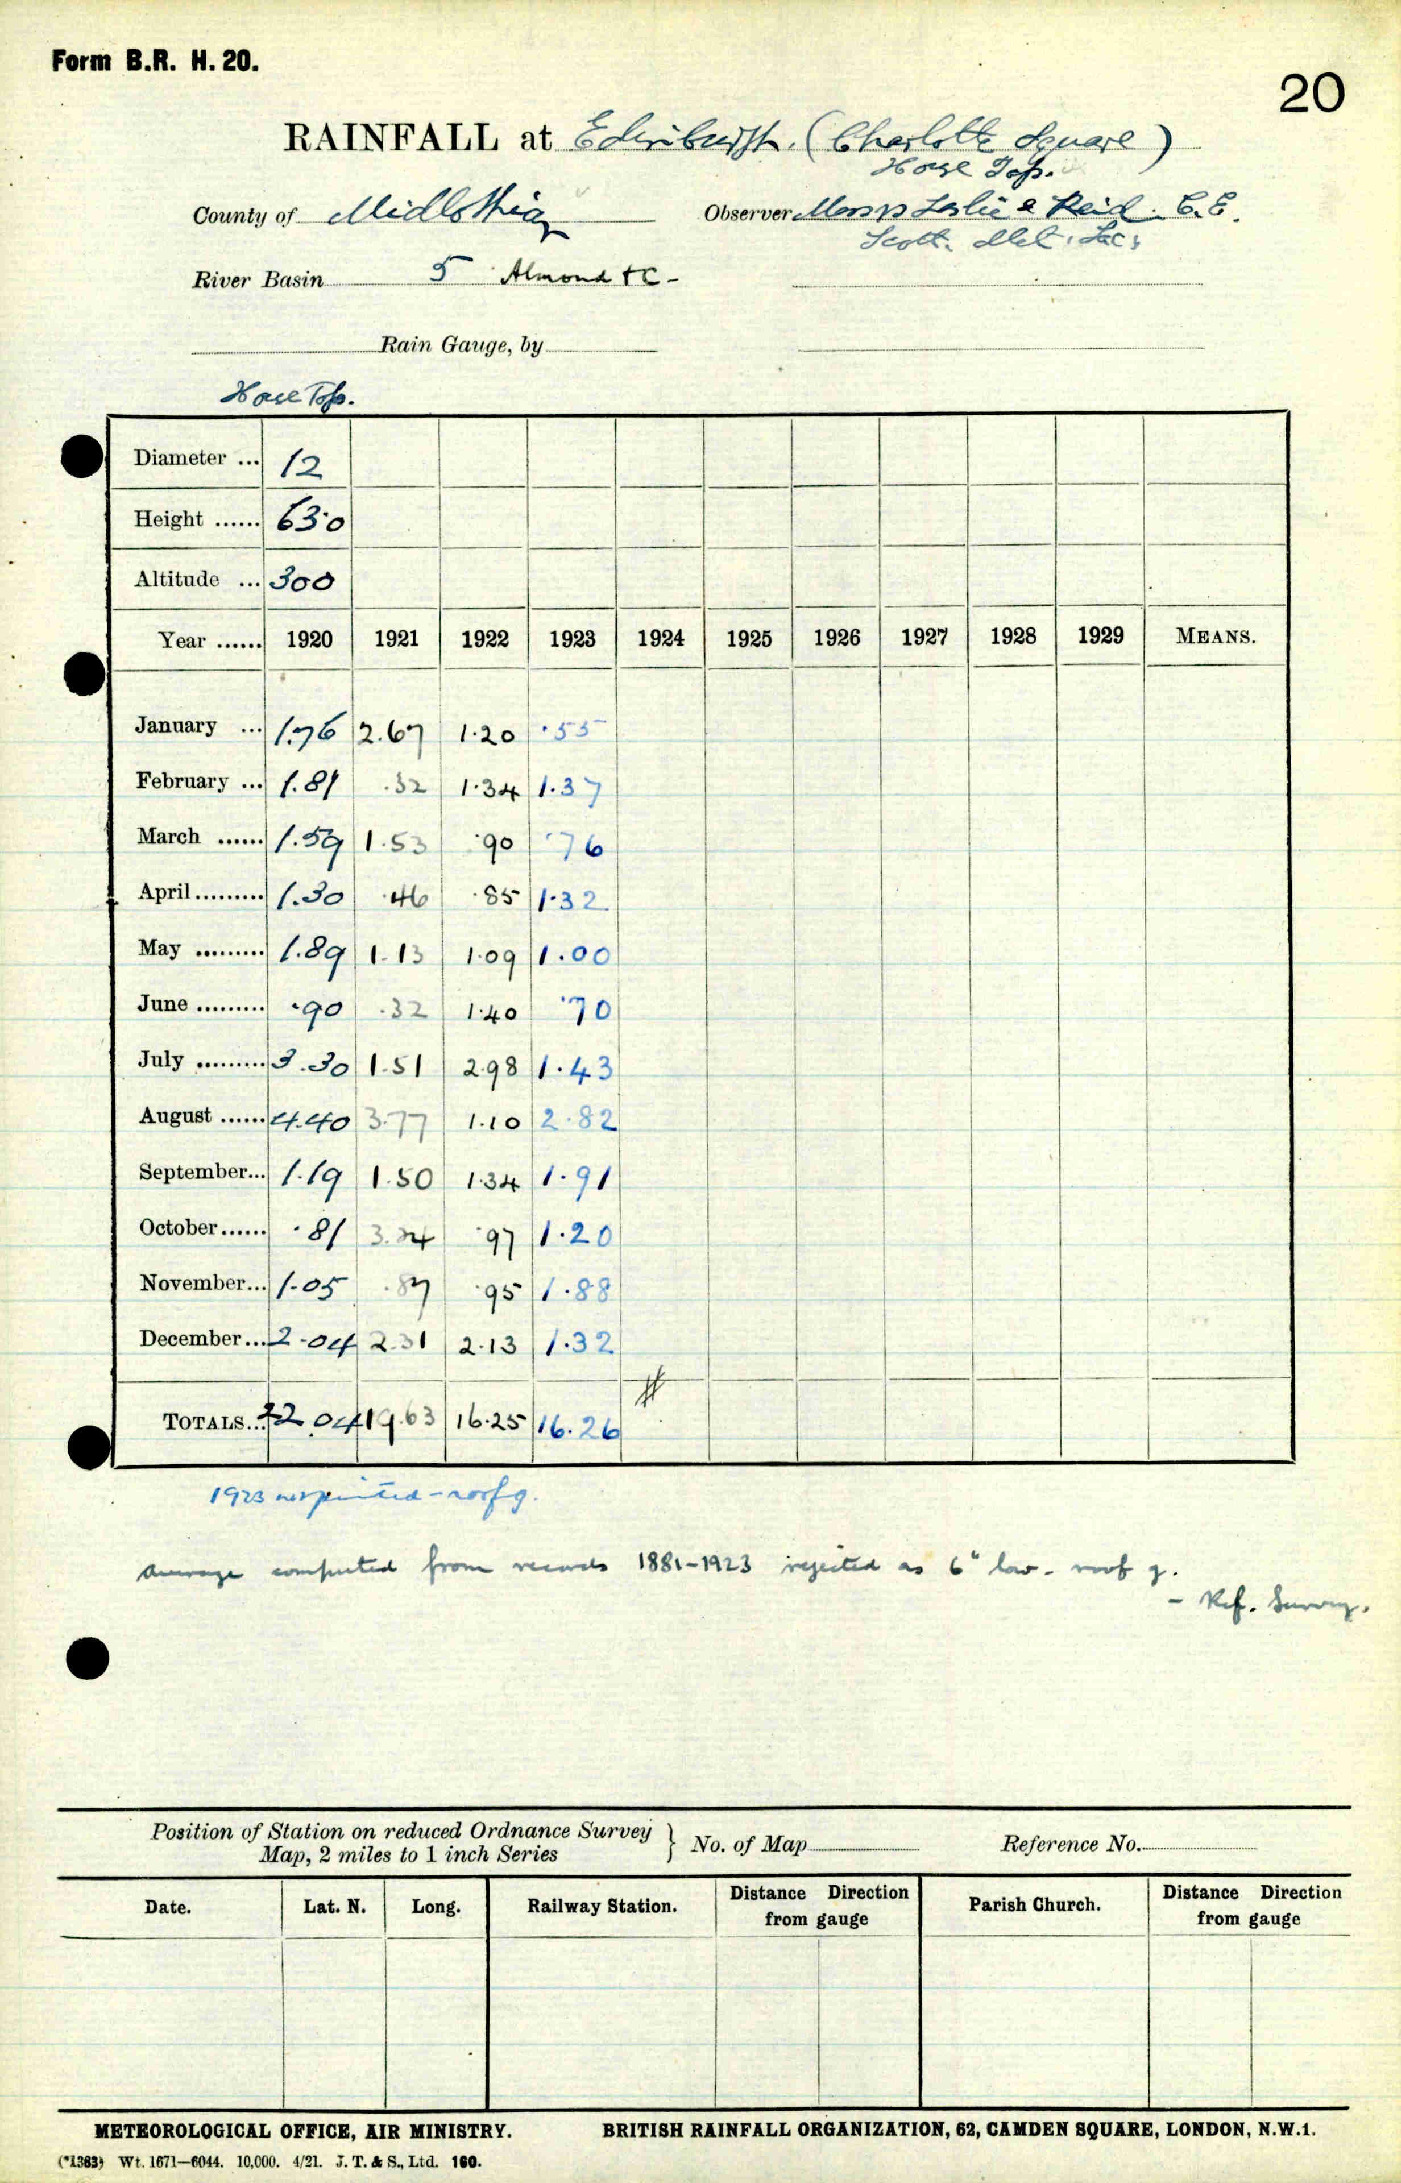 Form B.R. H. 20.
20
RAINFALL at Edinburgh. (Charlotte Square)
House Top.
County of Midlothian Observer Messrs Leslie & Reid. C.E.
Scott. Met. Soc.
River Basin 5 Almond &c-
Rain Gauge, by
House Top.
Diameter ... 12
Height ...... 63·0
Altitude ... 300
Year ...... 1920 1921 1922 1923 1924 1925 1926 1927 1928 1929 MEANS.
January ... 1.76 2.67 1·20 ·55
February ... 1.81 .32 1·34 1·37
March ...... 1.59 1.53 ·90 ·76
April ......... 1.30 ·46 ·85 1·32
May ......... 1.89 1.13 1·09 1.00
June ......... ·90 ·32 1·40 ·70
July ......... 3.30 1.51 2.98 1.43
August ...... 4.40 3.77 1.10 2.82
September... 1.19 1.50 1·34 1.91
October...... ·81 3.24 ·97 1.20
November... 1.05 .87 ·95 1.88
December... 2.04 2.31 2·13 1.32
TOTALS... 22.04 19.63 16·25 16.26
1923 not printed - roof g.
Average computed from records 1881-1923 rejected as 6" low - roof g.
- Ref. Survey.
Position of Station on reduced Ordnance Survey
Map, 2 miles to 1 inch Series } No. of Map Reference No.
Date. Lat. N. Long. Railway Station. Distance Direction from gauge Parish Church. Distance Direction from gauge
METEOROLOGICAL OFFICE, AIR MINISTRY. BRITISH RAINFALL ORGANIZATION, 62, CAMDEN SQUARE, LONDON, N.W.1.
(*1383) Wt. 1671—6044. 10,000. 4/21. J. T. & S., Ltd. 160.